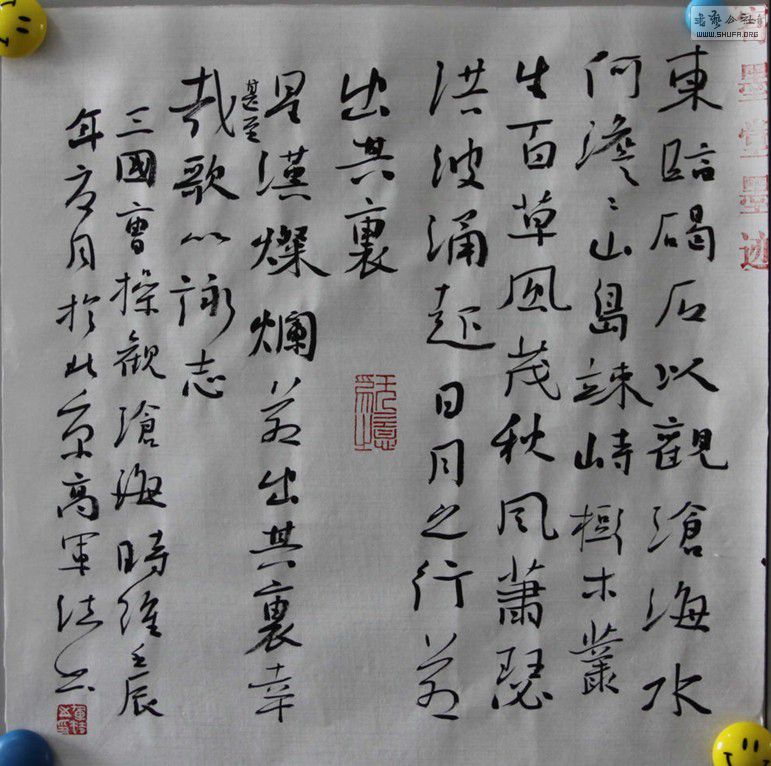 書藝公社
WWW.SHUFA.ORG
墨堂墨迹
東臨碣石以觀滄海水
何澹〻山島竦峙樹木叢
生百草風茂秋風蕭瑟
洪波涌起日月之行若
出其裏
星漢燦爛若出其裏幸
甚至
哉歌以詠志
三國曹操觀滄海時維壬辰
年月於北京高軍法書